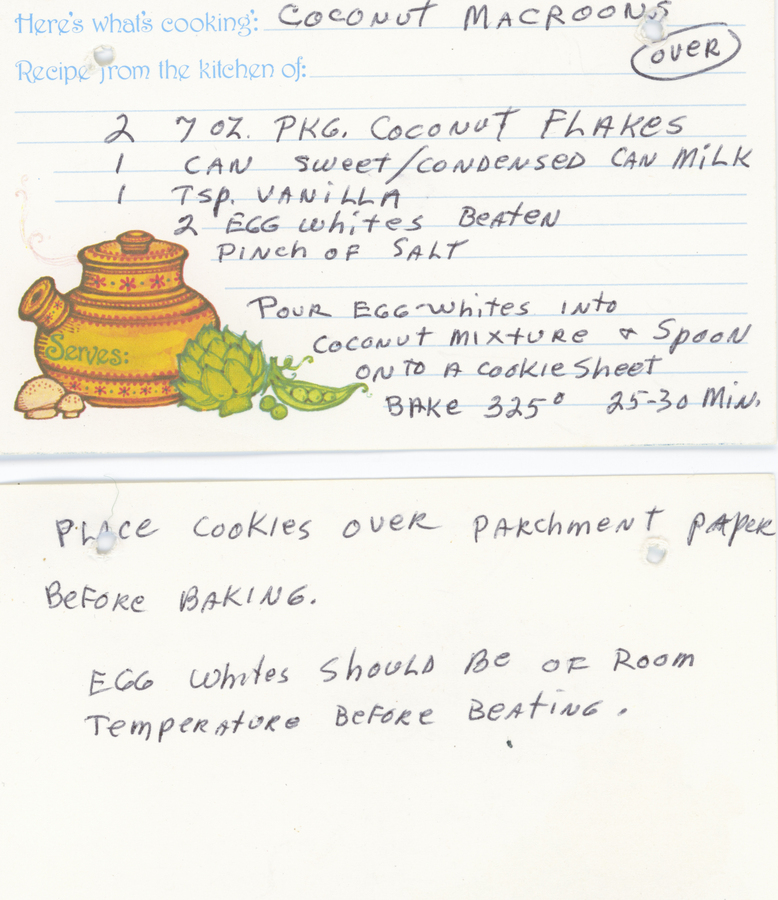 Here's what's cooking: COCONUT MACROONS
OVER
Recipe from the kitchen of:
2 7 OZ. PKG. COCONUT FLAKES
1 CAN SWEET/CONDENSED CAN MILK
1 TSP. VANILLA
2 EGG WHITES BEATEN
PINCH OF SALT
POUR EGG-WHITES INTO
COCONUT MIXTURE & SPOON
ONTO A COOKIE SHEET
BAKE 325° 25-30 MIN.
Serves:
PLACE COOKIES OVER PARCHMENT PAPER
BEFORE BAKING.
EGG WHITES SHOULD BE OF ROOM
TEMPERATURE BEFORE BEATING.